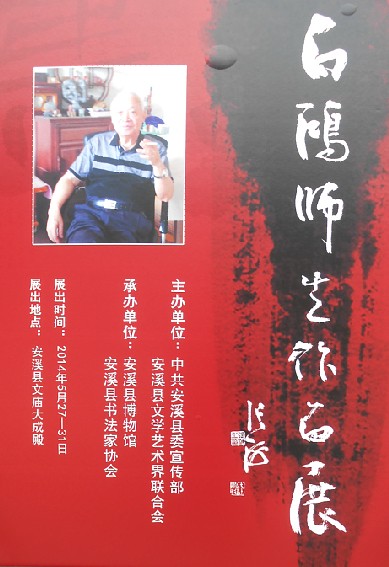 白鸥师生作品展
主办单位：中共安溪县委宣传部
安溪县文学艺术界联合会
承办单位：安溪县博物馆
安溪县书法家协会
展出时间：2014年5月27—31日
展出地点：安溪县文庙大成殿